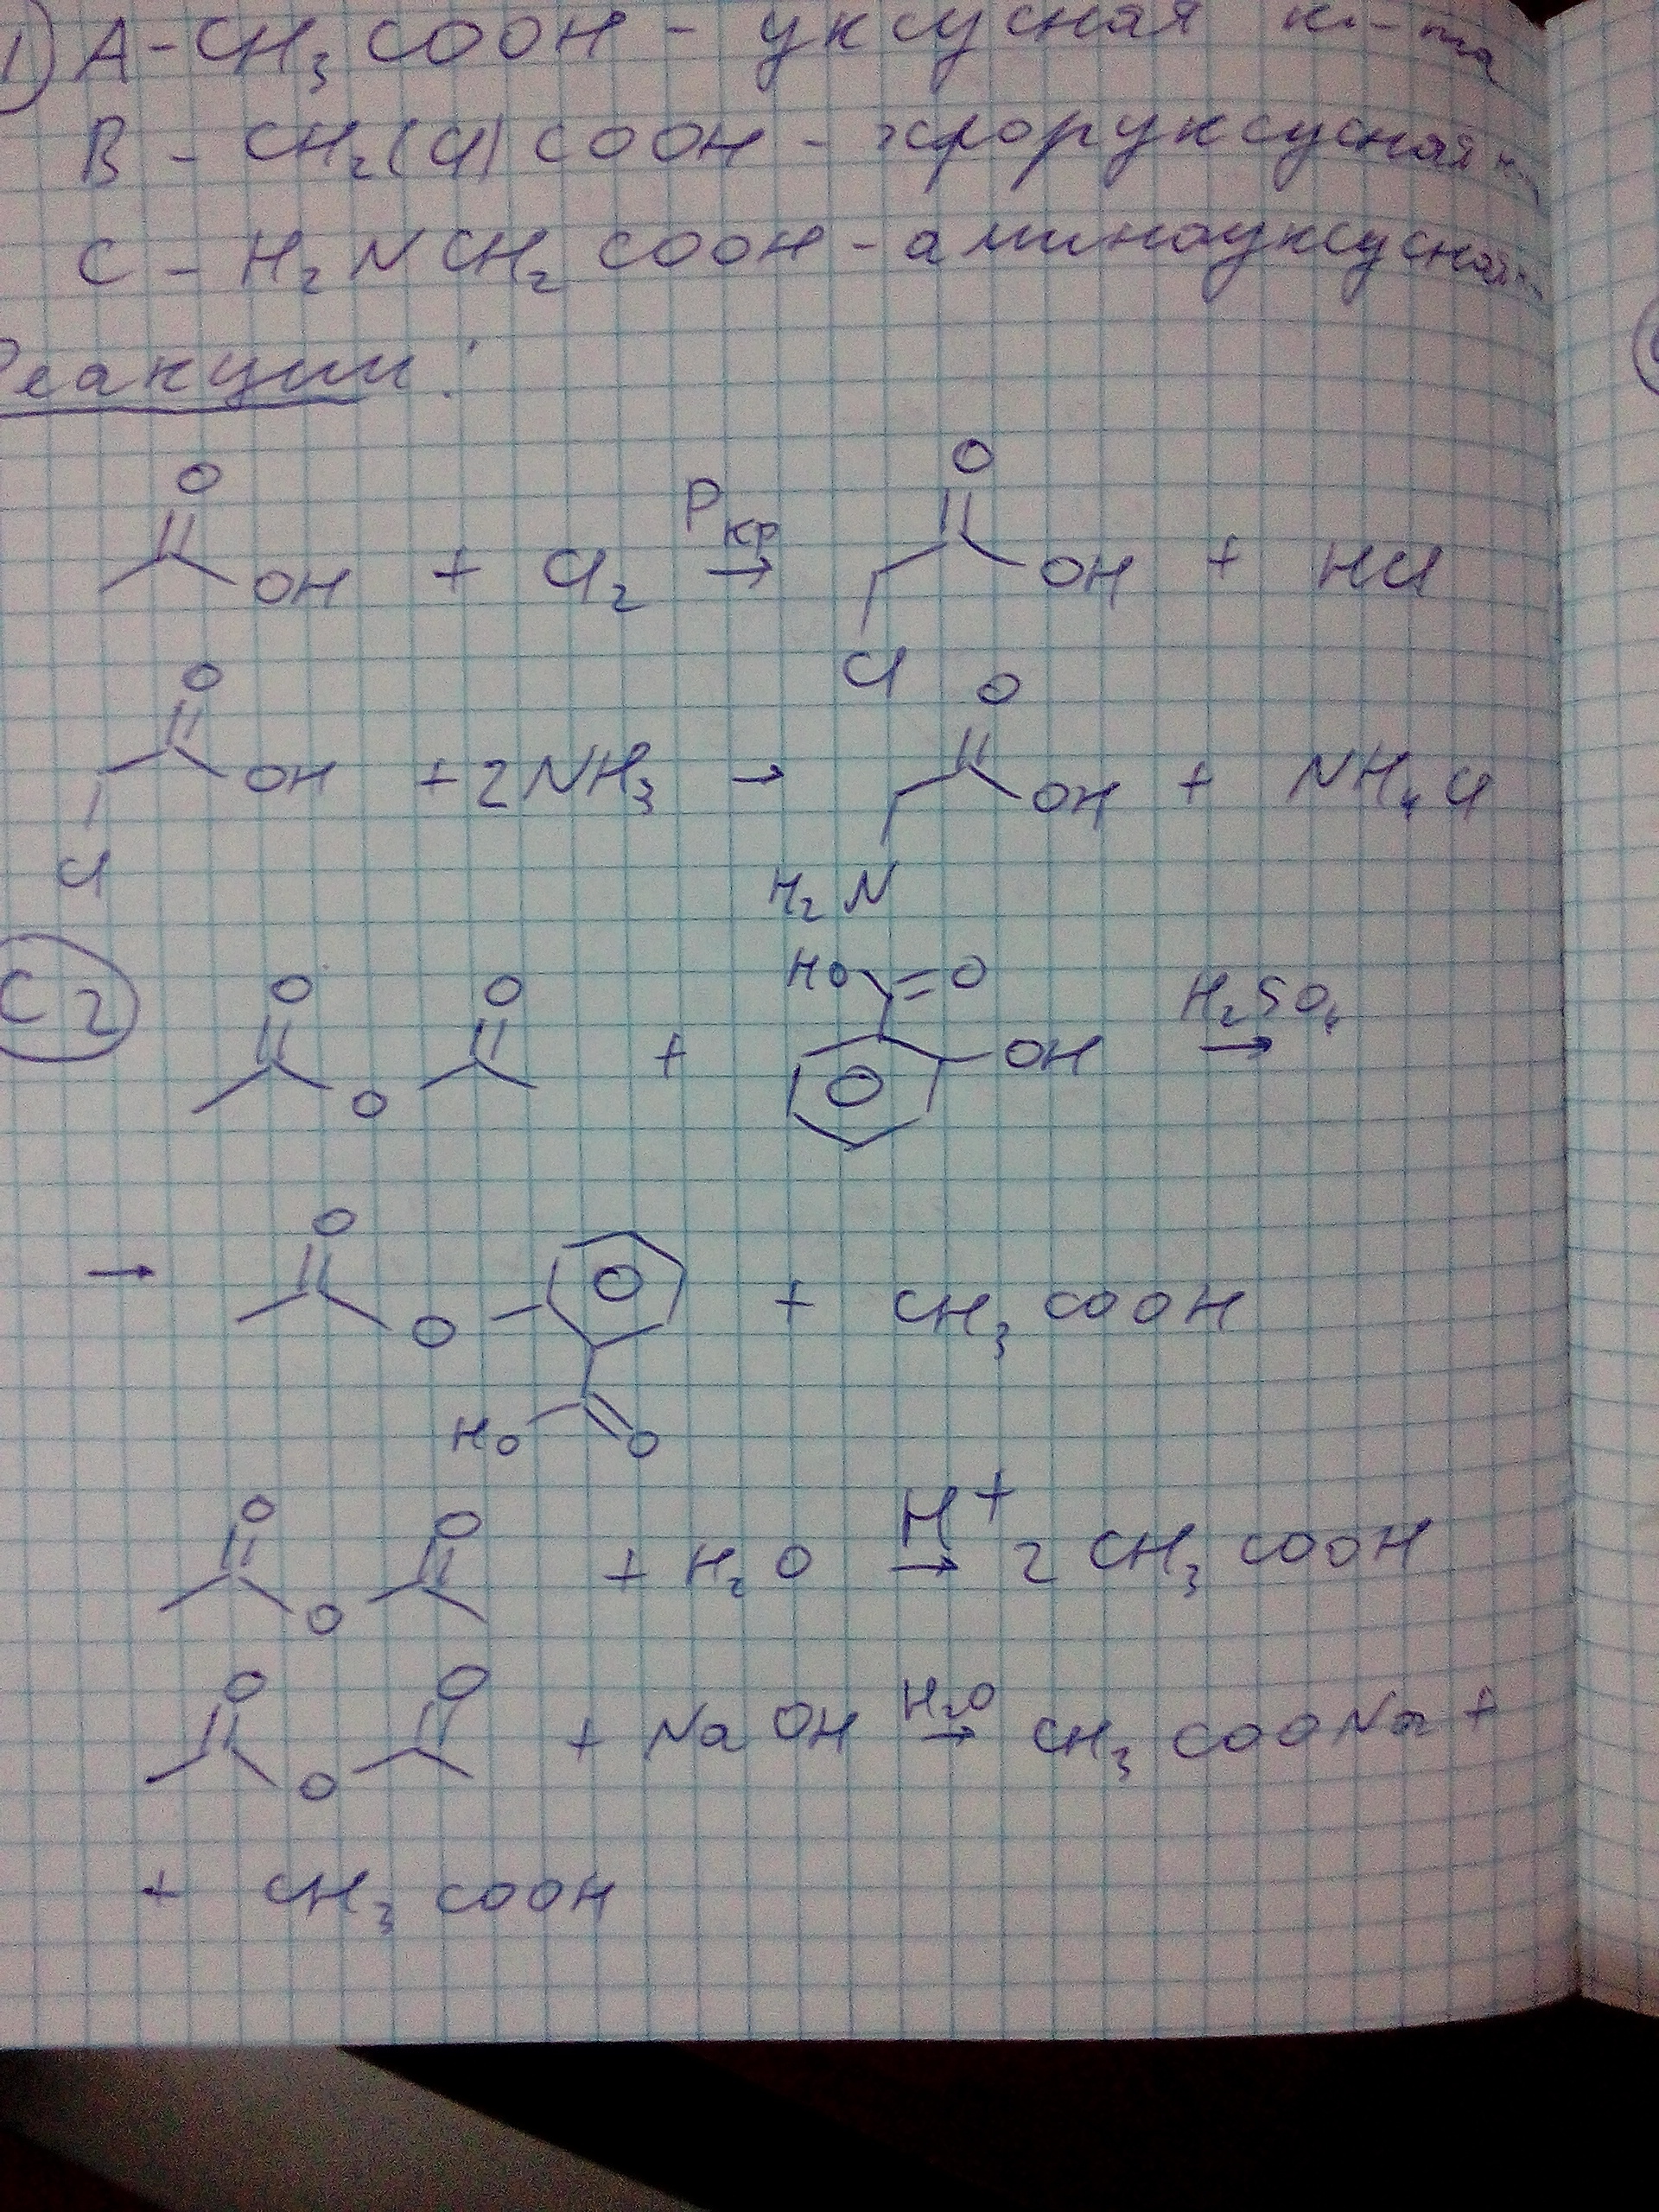 1) A - CH₃COOH - уксусная к-та
B - CH₂(Cl)COOH - хлоруксусная к-
C - H₂NCH₂COOH - аминоуксусная к-
Реакции:
O
OH + Cl₂ P кр → O OH + HCl
Cl
O
OH + 2NH₃ → O OH + NH₄Cl
Cl
H₂N
C2
O O
O + HO O OH H₂SO₄ →
→ O
O + CH₃COOH
HO O
O O
O + H₂O H⁺ → 2 CH₃COOH
O O
O + NaOH H₂O → CH₃COONa +
+ CH₃COOH